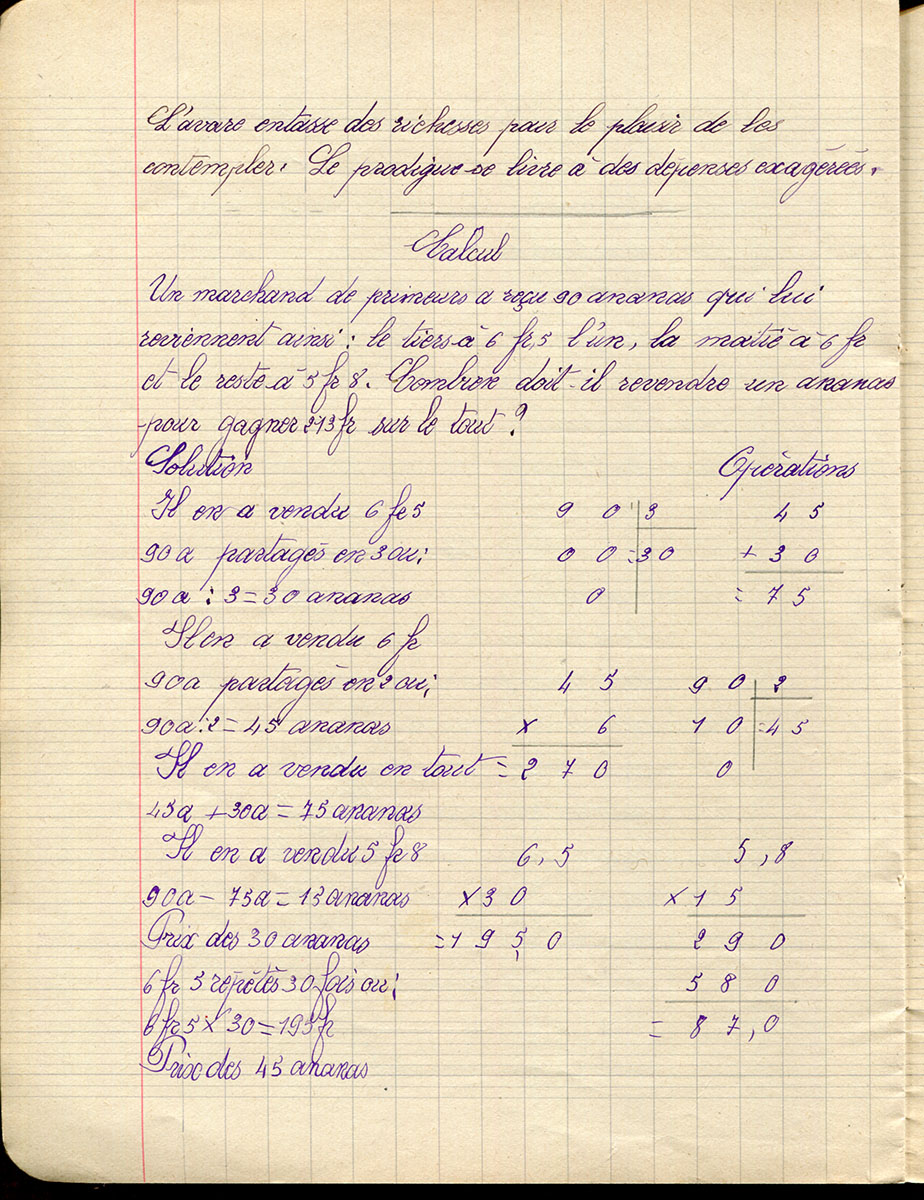 L'avare entasse des richesses pour le plaisir de les
contempler. Le prodigue se livre à des dépenses exagérées.
Calcul
Un marchand de primeurs a reçu 90 ananas qui lui
reviennent ainsi : le tiers à 6 fr,5 l'un, la moitié à 6 fr
et le reste à 5 fr 8. Combien doit-il revendre un ananas
pour gagner 213 fr sur le tout ?
Solution Opérations
Il en a vendu 6 fr 5 9 0 3 4 5
90 a partagés en 3 ou : 0 0 = 30 + 3 0
90 a : 3 = 30 ananas 0 = 7 5
Il en a vendu 6 fr
90 a partagés en 2 ou : 4 5 9 0 2
90 a : 2 = 45 ananas × 6 1 0 = 45
Il en a vendu en tout = 2 7 0 0
45 a + 30 a = 75 ananas
Il en a vendu 5 fr 8 6,5 5,8
90 a - 75 a = 15 ananas × 3 0 × 1 5
Prix des 30 ananas = 1 9 5, 0 2 9 0
6 fr 5 répétés 30 fois ou : 5 8 0
6 fr 5 × 30 = 195 fr = 8 7,0
Prix des 45 ananas